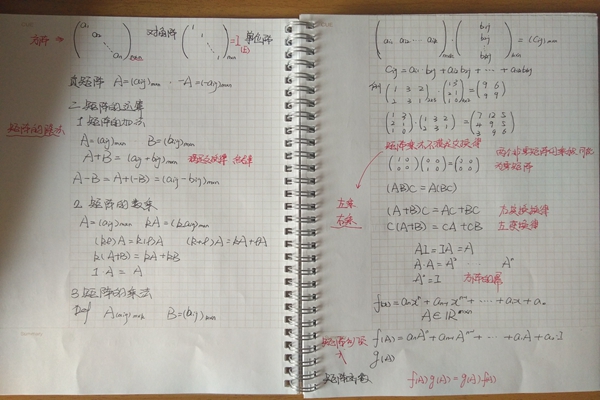 方阵 → (a₁ a₂ ⋱ aₙ) 对角阵 (1 1 ⋱ 1) = I 单位阵
(E)
负矩阵 A=(aij)mn -A=(-aij)mn
二、矩阵的运算
1 矩阵的加法
矩阵的乘法
A=(aij)mn B=(bij)mn
A+B = (aij+bij)mn 满足交换律 结合律
A-B = A+(-B) = (aij-bij)mn
2. 矩阵的数乘
A=(aij)mn kA=(kaij)mn
(kl)A=k(lA) (k+l)A=kA+lA
k(A+B)=kA+kB
1·A = A
3 矩阵的乘法
Def A(aij)mxk B=(bij)
(ai1 ai2 ... aik) · (b1j b2j ⋮ bkj) = (Cij)mn
Cij=ai1 b1j + ai2 b2j + ... + aik bkj
例 (1 3 2 / 2 3 1)2x3 · (1 3 / 2 1 / 1 0)3x2 = (9 6 / 9 9)
(1 3 / 2 1 / 1 0) · (1 3 2 / 2 3 1) = (7 12 5 / 4 9 5 / 3 2)
矩阵乘法不满足交换律
(1 0 / 0 0)(0 0 / 0 1) = (0 0 / 0 0) 两个非零矩阵相乘可能为零矩阵
(AB)C = A(BC)
左乘
右乘
(A+B)C = AC+BC 右分配律
C(A+B) = CA+CB 左分配律
AI = IA = A
A·A = A² ... Aⁿ
A⁰=I 方阵的幂
f(x)=aₙxⁿ+aₙ₋₁xⁿ⁻¹+...+a₁x+a₀
A∈IRⁿˣⁿ
矩阵多项式
f(A)=aₙAⁿ+aₙ₋₁Aⁿ⁻¹+...+a₁A+a₀I
g(A)
矩阵函数 f(A)g(A)=g(A)f(A)